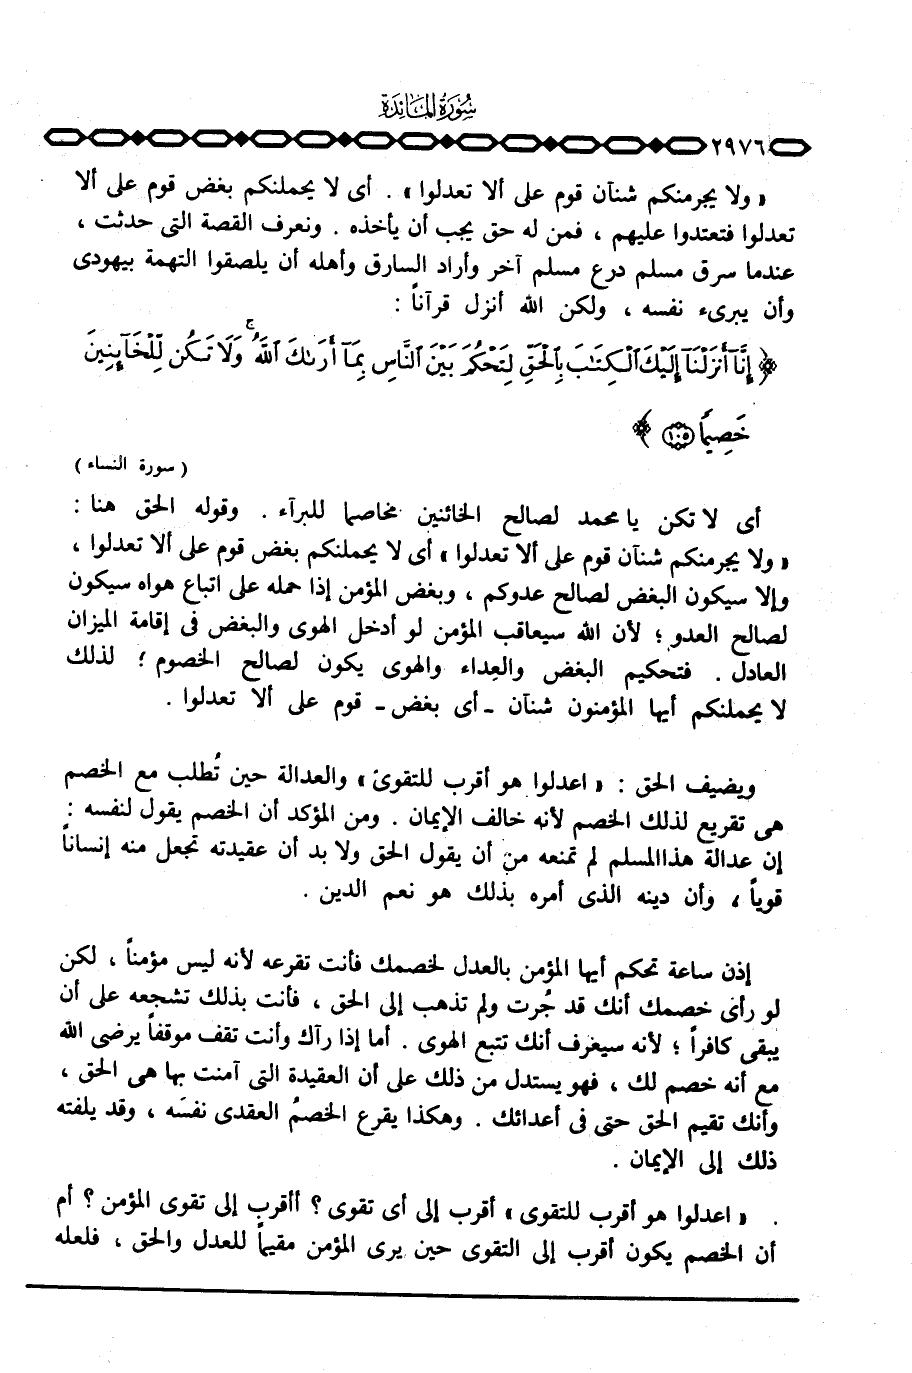 سُورَةُ المَائِدَة
٢٩٧٦
« ولا يجرمنكم شنآن قوم على ألا تعدلوا » . أى لا يحملنكم بغض قوم على ألا
تعدلوا فتعتدوا عليهم ، فمن له حق يجب أن يأخذه . ونعرف القصة التى حدثت ،
عندما سرق مسلم درع مسلم آخر وأراد السارق وأهله أن يلصقوا التهمة بيهودى
وأن يبرىء نفسه ، ولكن الله أنزل قرآناً :
﴿ إِنَّآ أَنزَلْنَآ إِلَيْكَ ٱلْكِتَٰبَ بِٱلْحَقِّ لِتَحْكُمَ بَيْنَ ٱلنَّاسِ بِمَآ أَرَىٰكَ ٱللَّهُ ۚ وَلَا تَكُن لِّلْخَآئِنِينَ
خَصِيمًا ١٠٥ ﴾
( سورة النساء )
أى لا تكن يا محمد لصالح الخائنين مخاصما للبرآء . وقوله الحق هنا :
« ولا يجرمنكم شنآن قوم على ألا تعدلوا » أى لا يحملنكم بغض قوم على ألا تعدلوا ،
وإلا سيكون البغض لصالح عدوكم ، وبغض المؤمن إذا حمله على اتباع هواه سيكون
لصالح العدو ؛ لأن الله سيعاقب المؤمن لو أدخل الهوى والبغض فى إقامة الميزان
العادل . فتحكيم البغض والعِداء والهوى يكون لصالح الخصوم ؛ لذلك
لا يحملنكم أيها المؤمنون شنآن ـ أى بغض ـ قوم على ألا تعدلوا .
ويضيف الحق : « اعدلوا هو أقرب للتقوى » والعدالة حين تُطلب مع الخصم
هى تقريع لذلك الخصم لأنه خالف الإيمان . ومن المؤكد أن الخصم يقول لنفسه :
إن عدالة هذاالمسلم لم تمنعه من أن يقول الحق ولا بد أن عقيدته تجعل منه إنساناً
قوياً ، وأن دينه الذى أمره بذلك هو نعم الدين .
إذن ساعة تحكم أيها المؤمن بالعدل لخصمك فأنت تقرعه لأنه ليس مؤمناً ، لكن
لو رأى خصمك أنك قد جُرت ولم تذهب إلى الحق ، فأنت بذلك تشجعه على أن
يبقى كافراً ؛ لأنه سيعرف أنك تتبع الهوى . أما إذا رآك وأنت تقف موقفاً يرضى الله
مع أنه خصم لك ، فهو يستدل من ذلك على أن العقيدة التى آمنت بها هى الحق ،
وأنك تقيم الحق حتى فى أعدائك . وهكذا يقرع الخصمُ العقدى نفسَه ، وقد يلفته
ذلك إلى الإيمان .
« اعدلوا هو أقرب للتقوى » أقرب إلى أى تقوى ؟ أأقرب إلى تقوى المؤمن ؟ أم
أن الخصم يكون أقرب إلى التقوى حين يرى المؤمن مقيماً للعدل والحق ، فلعله